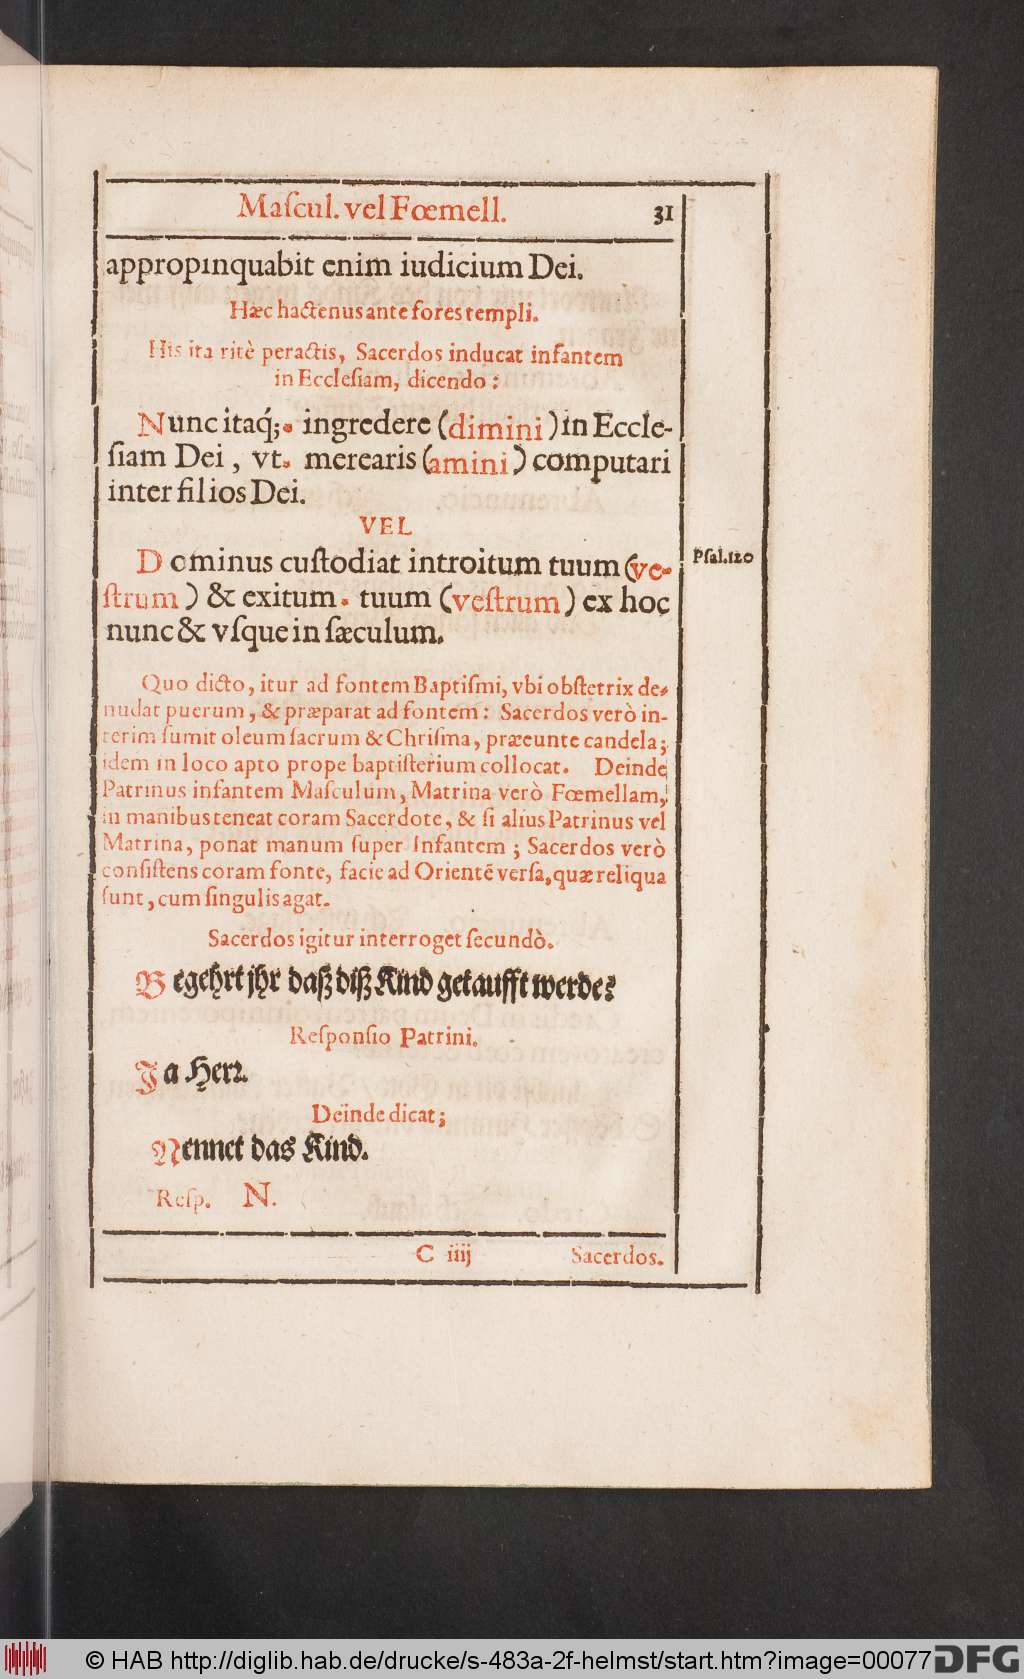 Maſcul. vel Fœmell. 31
appropinquabit enim iudicium Dei.
Hæc hactenus ante fores templi.
His ita ritè peractis, Sacerdos inducat infantem
in Eccleſiam, dicendo:
Nunc itaq́; ingredere (dimini) in Eccle-
ſiam Dei, vt merearis (amini) computari
inter filios Dei.
VEL
Dominus cuſtodiat introitum tuum (ve- Pſal. 120
ſtrum) & exitum tuum (veſtrum) ex hoc
nunc & vſque in ſæculum.
Quo dicto, itur ad fontem Baptiſmi, vbi obſtetrix de-
nudat puerum, & præparat ad fontem: Sacerdos verò in-
terim ſumit oleum ſacrum & Chriſma, præeunte candela;
idem in loco apto prope baptiſterium collocat. Deinde
Patrinus infantem Maſculum, Matrina verò Fœmellam,
in manibus teneat coram Sacerdote, & ſi alius Patrinus vel
Matrina, ponat manum ſuper Infantem; Sacerdos verò
conſiſtens coram fonte, facie ad Orientē verſa, quæ reliqua
ſunt, cum ſingulis agat.
Sacerdos igitur interroget ſecundò.
Begehrt jhr daß diß Kind getaufft werde?
Reſponſio Patrini.
Ja Herꝛ.
Deinde dicat;
Nennet das Kind.
Reſp. N.
C iiij Sacerdos.
© HAB http://diglib.hab.de/drucke/s-483a-2f-helmst/start.htm?image=00077 DFG